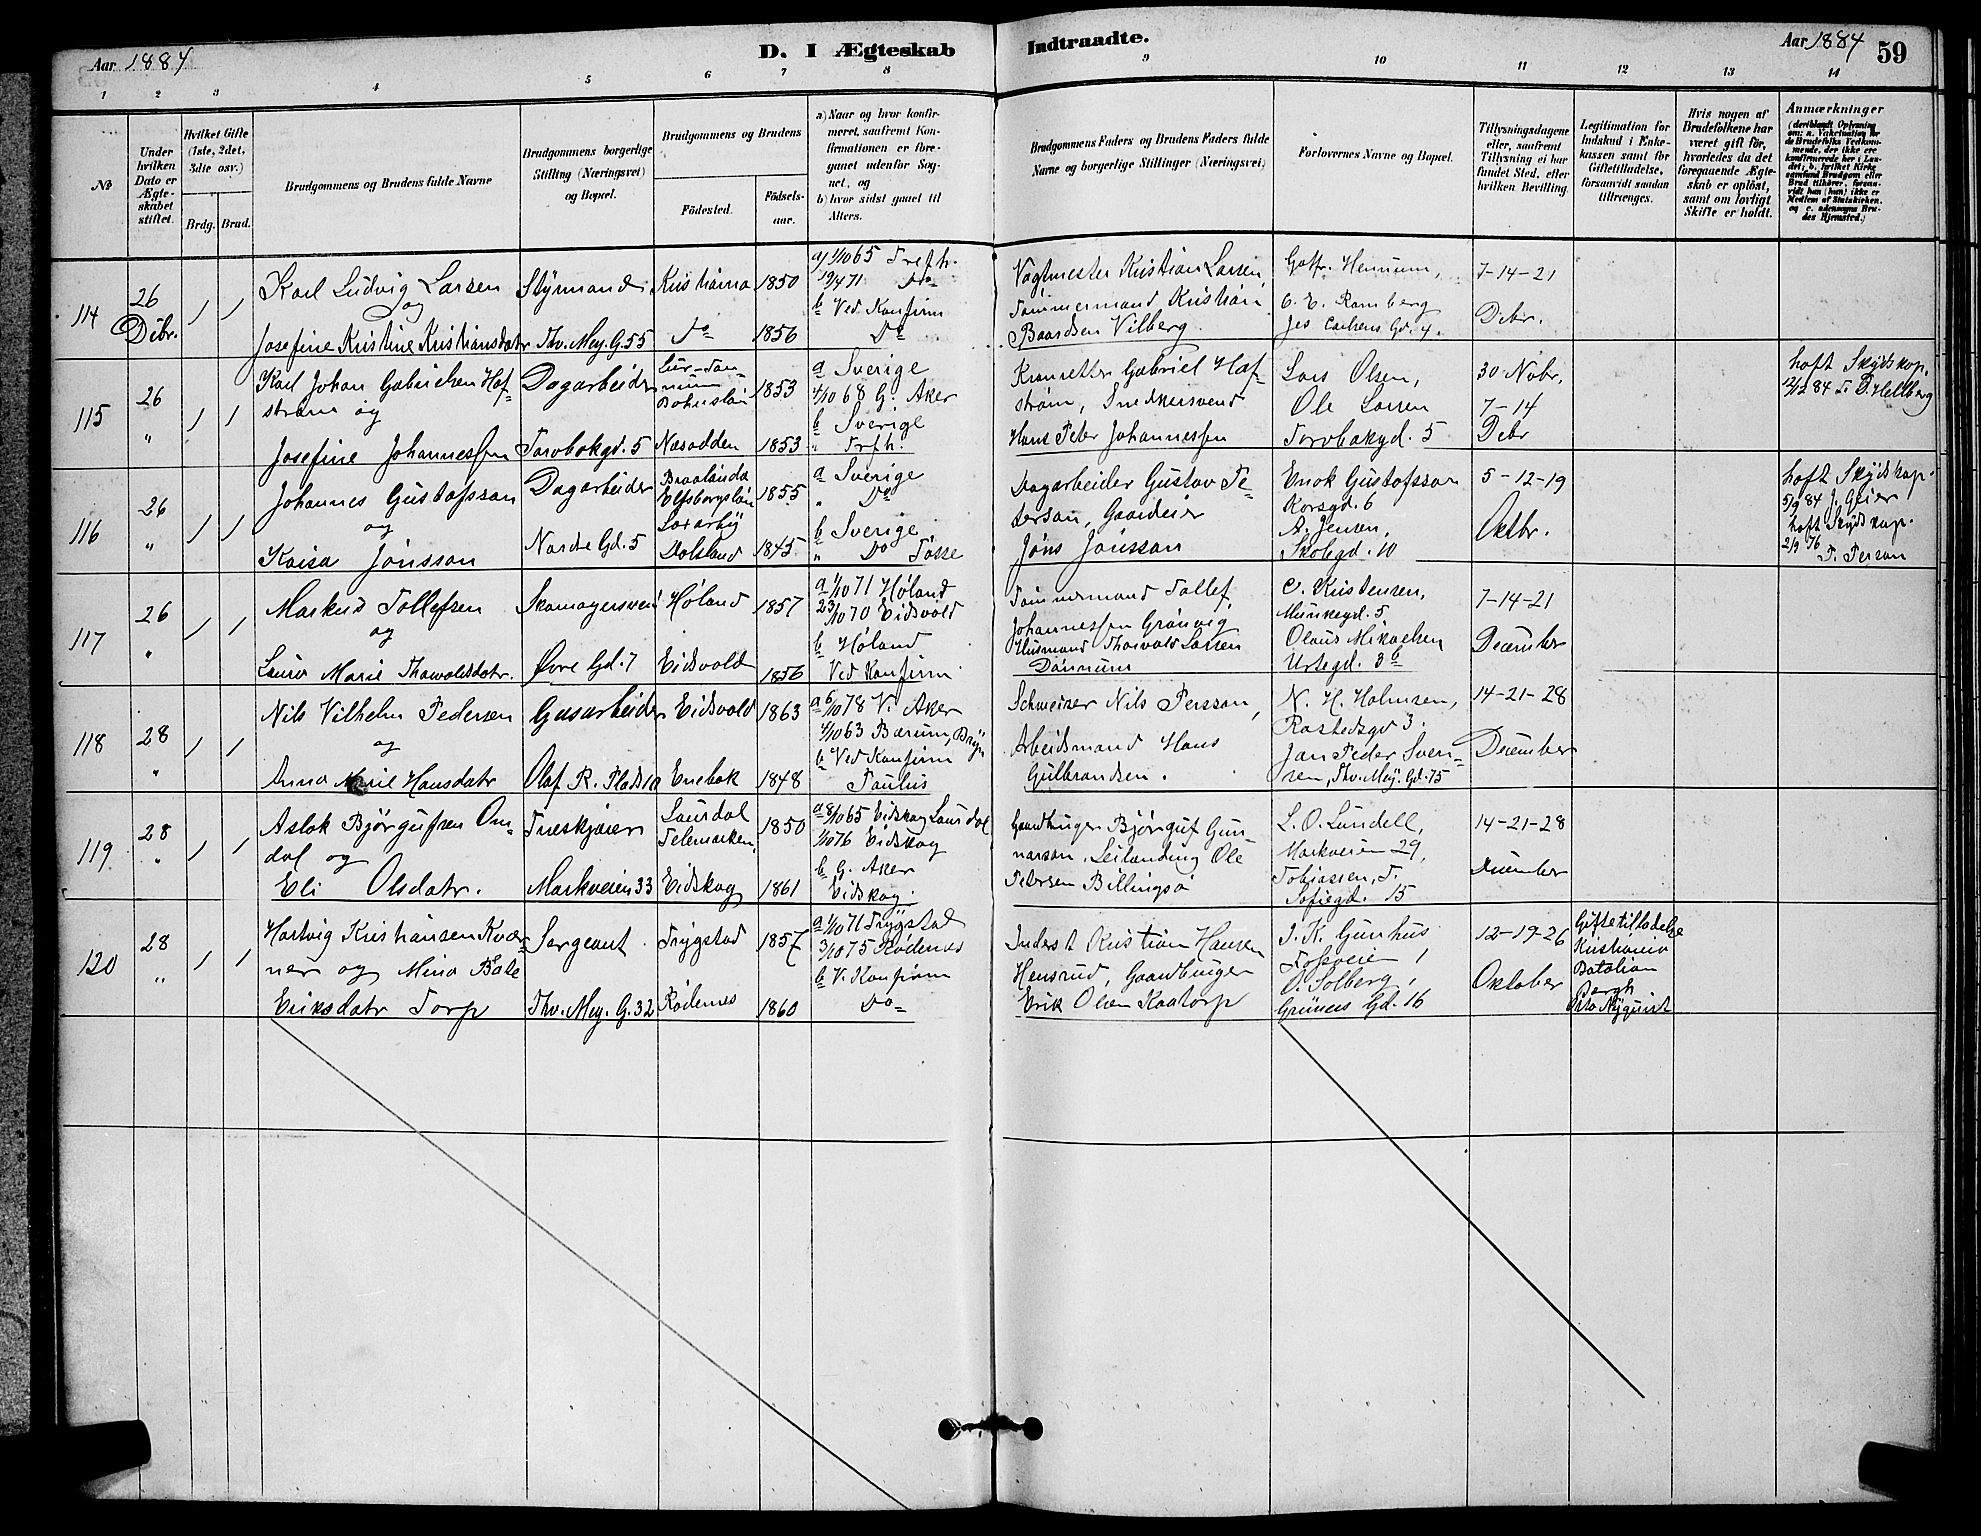 Aar 1884
D. I Ægteskab
Indtraadte.
Aar 1884
59
1 2 3 4 5 6 7 8 9 10 11 12 13 14
No
Under
hvilken
Dato er
Ægte-
skabet
stiftet.
Hvilket Gifte
(1ste, 2det,
3die osv.)
Brdg. Brud.
Brudgommens og Brudens fulde Navne
Brudgommens borgerlige
Stilling (Næringsvei)
og Bopæl.
Brudgommens og Brudens
Födested.
Födsels-
aar.
a) Naar og hvor konfir-
meret, saafremt Kon-
firmationen er fore-
gaaet udenfor Sog-
net, og
b) hvor sidst gaaet til
Alters.
Brudgommens Faders og Brudens Faders fulde
Navne og borgerlige Stillinger (Næringsvei)
Forlovernes Navne og Bopæl.
Tillysningsdagene
eller, saafremt
Tillysning ei har
fundet Sted, efter
hvilken Bevilling.
Legitimation for
Indskud i Enke-
kassen samt for
Giftetilladelse,
forsaavidt saadan
tiltrænges.
Hvis nogen af
Brudefolkene har
været gift för,
hvorledes da det
foregaaende Ægte-
skab er oplöst,
samt om lovligt
Skifte er holdt.
Anmærkninger
(deriblandt Oplysning
om: a. Vaksination for
de Brudefolks Vedkom-
mende, der ikke ere
konfirmerede her i Lan-
det; b. hvilket Kirke-
samfund Brudgom eller
Brud tilhører, forsaa-
vidt han (hun) ikke er
Medlem af Statskirken,
og c. udensogns Bru-
des Hjemsted.)
114
26
Debr.
1 1
Karl Ludvig Larsen
og
Josefine Kristine Kristiansdatr
Styrmand
Thv. Mey. G. 55
Kristiania
Do
1850
1856
a) 1/10 65 Trefh.
19/4 71 Do
b Ved Konfirm
Do
Vogtmester Kristian Larsen,
Tømmermand Kristian
Baardsen Vilberg
Gotfr. Hennum,
C. E. Ramberg
Jes Carlsens Gd. 4.
7-14-21
Debr.
115
26
"
1 1
Karl Johan Gabrielsen Haf-
strøm og
Josefine Johannessen
Dagarbeider
Torvbakgd. 5
Bohuslän
Næsodden
1853
1853
a Sverige
4/10 68 G. Aker
b Sverige
" Trfh.
Gabriel Haf-
strøm, Snedkersvend
Hans Peter Johannessen
Lars Olsen,
Ole Larsen
Torvbakgd. 5
30 Nobr.
7-14
Debr
haft Skydskop.
12/12 84 D. Hellberg
116
26
"
1 1
Johannes Gustafsson
og
Kaisa Jönsson
Dagarbeider
Nordre Gd. 5
Elfsborgslän
Dalsland
1855
1845
a Sverige
" Do
b Sverige
" Do Tösse
Dagarbeider Gustav Pe-
dersan, Gaardeier
Jöns Jönsson
Enok Gustafsson
Korsgd. 6
A. Jensen,
Skolegd. 10
5-12-19
Oktbr.
haft Skydskop.
5/9 84 J. Geier
haft Skydskop.
2/9 76
P. Person
117
26
"
1 1
Markus Tollefsen
og
Laura Marie Thorvaldsdatr.
Skomagersvend
Øvre Gd. 7
Høland
Eidsvold
1857
1856
a 1/10 71 Høland
23/10 70 Eidsvold
b Høland
Ved Konfirm
Tømmermand Tollef
Johannessen Grønvig
Husmand Thorvald Larsen
Dønnum
C. Kristensen,
Munkegd. 5
Olaus Mikaelsen
Urtegd. 3b
7-14-21
December
118
28
"
1 1
Nils Vilhelm Pedersen
og
Anna Marie Hansdatr
Gasarbeider
Olaf R. Plads 10
Eidsvold
Enebak
1863
1848
a 6/10 78 V. Aker
4/10 63 Bærum, Bryn
b Ved Konfirm
Paulus
Schweizer Nils Persson,
Arbeidsmand Hans
Gulbrandsen.
N. H. Holmsen,
Rostedsgd 3.
Jan Peder Sven-
sen, Thv. Mey. Gd. 75
14-21-28
December
119
28
"
1 1
Aslak Bjørgufsen Om-
dal og
Eli Olsdatr.
Træskjærer
Markveien 33
Laurdal
Telemarken
Eidskog
1850
1861
a 8/10 65 Eidskog Laurdal
1/10 76 Eidskog
b G. Aker
Eidskog
Gaardbruger Bjørguf Gun-
narson, Leilænding Ole
Petersen Billingsø
L. O. Lundell,
Markveien 29,
Tobiassen, T.
Sofiegd. 15
14-21-28
December
120
28
"
1 1
Hartvig Kristiansen Kvær-
ner og Mina Bole
Eriksdatr Torp
Sergeant
Thv. Mey. G. 32
Trygstad
Rødenes
1857
1860
a 1/10 71 Trygstad
3/10 75 Rødenæs
b V. Konfirm
Do
Inderst Kristian Hansen
Hensrud, Gaardbruger
Erik Olsen Kaatorp
J. K. Gunhus
O. Solberg,
Grüners Gd. 16
12-19-26
Oktober
Giftetilladelse
Kristiania
Batalion
Bergh
Otto Nyquist